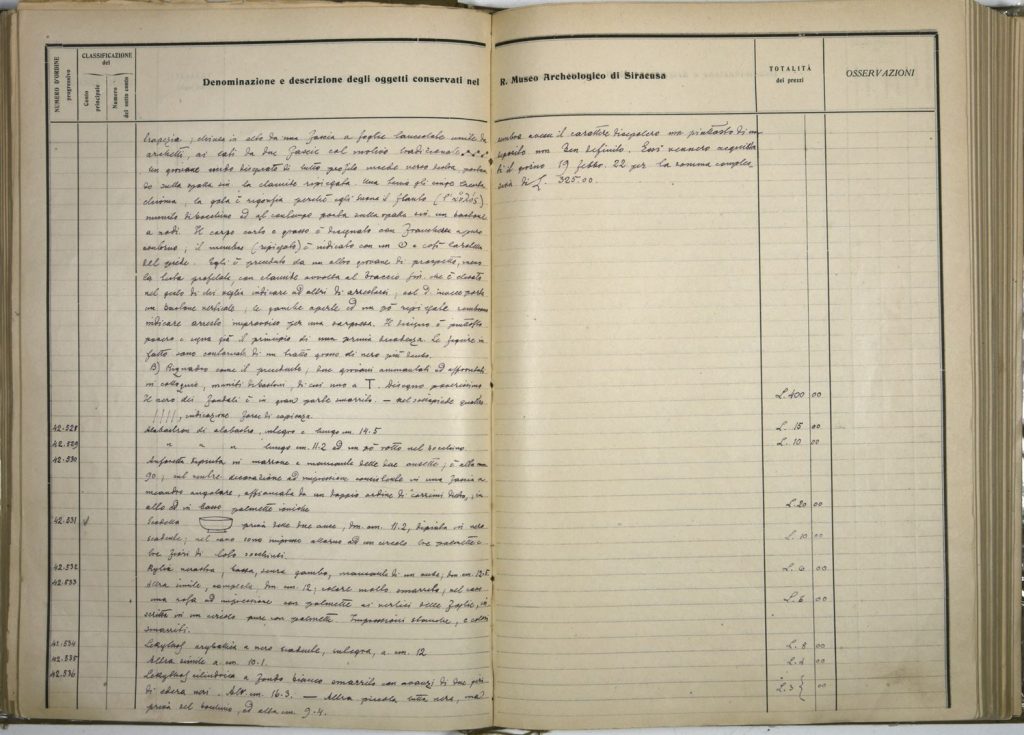 NUMERO D'ORDINE progressivo
CLASSIFICAZIONE del
Conto principale
Numero del sotto conto
Denominazione e descrizione degli oggetti conservati nel R. Museo Archeologico di Siracusa
TOTALITÀ dei prezzi
OSSERVAZIONI
trapezia; chiusa in alto da una fascia a foglie lanceolate unite da
archetti, ai lati da due fascie col motivo tradizionale
Un giovane nudo di tutto profilo verso destra,
sulla spalla sin. la clamide ripiegata.
la gota è rigonfia perchè egli suona il flauto (l'αὐλός)
munito di bocchino ed al contempo porta sulla spalla sin. un bastone
a nodi. Il corpo corto e grosso è disegnato con franchezza
contorno; il membro (ripiegato) è indicato con un O e così la rotella
del piede. Egli è preceduto da un altro giovane di prospetto, meno
la testa profilata, con clamide avvolta al braccio sin. che è elevato
nel gesto di chi voglia indicare ad altri di arrestarsi; col d. invece porta
un bastone verticale; le gambe aperte ed un pò ripiegate sembrano
indicare arresto improvviso per una sorpresa. Il disegno è piuttosto
povero e segna già il principio di una prima decadenza. Le figure in
fatto sono contornate di un tratto grosso di nero più denso.
B) Riquadro come il precedente, due giovani ammantati ed affrontati
in colloquio, muniti di bastoni, di cui uno a T. Disegno poverissimo
Il nero dei fondali è in gran parte smarrito. — nel sottopiede quattro
////, indicazione forse di capienza.
L. 400 00
42.528 Alabastron di alabastro, integro e lungo m. 14.5 L. 15 00
42.529 " " " lungo m. 11.2 ed un pò rotto nel bocchino. L. 10 00
42.530 Anforetta dipinta in marrone e mancante delle due ansette; è alta mm.
90; sul ventre decorazione ad impressione consistente in una fascia a
meandro angolare, affiancata da un doppio ordine di correnti dietro, in
alto ed in basso palmette ioniche L. 20 00
42.531 Scodella priva delle due anse, dm. cm. 11.2, dipinta in nero
scadente; nel cavo sono impresse attorno ad un circolo tre palmette e
tre fiori di loto socchiusi. L. 10 00
42.532 Kylix nerastra, bassa, senza gambo, mancante di un ansa, dm. cm. 12.5 L. 6 00
42.533 Altra simile, completa, dm. cm. 12; colore molto smarrito; nel cavo
una rosa ad impressione con palmette ai vertici delle foglie,
in un circolo pure con palmette. Impressioni stanche, e colori
smarriti. L. 6 00
42.534 Lekythos aryballica a nero scadente, integra, a. cm. 12 L. 8 00
42.535 Altra simile a. cm. 10.1. L. 4 00
42.536 Lekythos cilindrica a fondo bianco smarrito con avanzi di due giri
di edera neri. Alt. cm. 16.3. — Altra piccola tutta nera,
priva del bocchino, ed alta cm. 9.4. L. 3 00
sembra avere il carattere disepolcro ma piuttosto di un
deposito non ben definito. Essi vennero acquistati
il giorno 19 febbr. 22 per la somma comples
siva di L. 325.00.